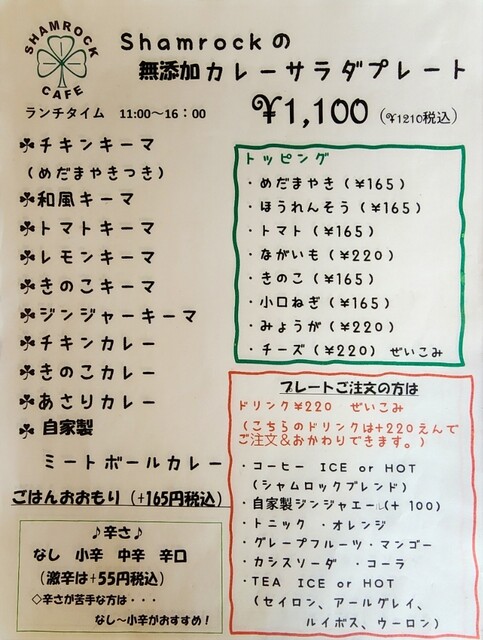 SHAMROCK CAFE
Shamrockの
無添加カレーサラダプレート
ランチタイム 11:00～16:00
¥1,100 (¥1210税込)
☘チキンキーマ
(めだまやきつき)
☘和風キーマ
☘トマトキーマ
☘レモンキーマ
☘きのこキーマ
☘ジンジャーキーマ
☘チキンカレー
☘きのこカレー
☘あさりカレー
☘自家製
ミートボールカレー
ごはんおおもり (+165円税込)
♪辛さ♪
なし 小辛 中辛 辛口
(激辛は+55円税込)
◇辛さが苦手な方は・・・
なし～小辛がおすすめ!
トッピング
・めだまやき (¥165)
・ほうれんそう (¥165)
・トマト (¥165)
・ながいも (¥220)
・きのこ (¥165)
・小口ねぎ (¥165)
・みょうが (¥220)
・チーズ (¥220) ぜいこみ
プレートご注文の方は
ドリンク¥220 ぜいこみ
(こちらのドリンクは+220えんで
ご注文&おかわりできます。)
・コーヒー ICE or HOT
(シャムロックブレンド)
・自家製ジンジャエール(+100)
・トニック ・オレンジ
・グレープフルーツ・マンゴー
・カシスソーダ ・コーラ
・TEA ICE or HOT
(セイロン、アールグレイ、
ルイボス、ウーロン)